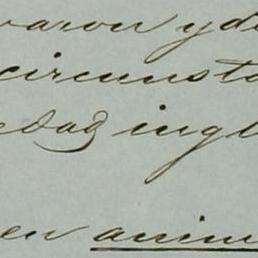 varon y de
circunsta
edad ingl
en anim